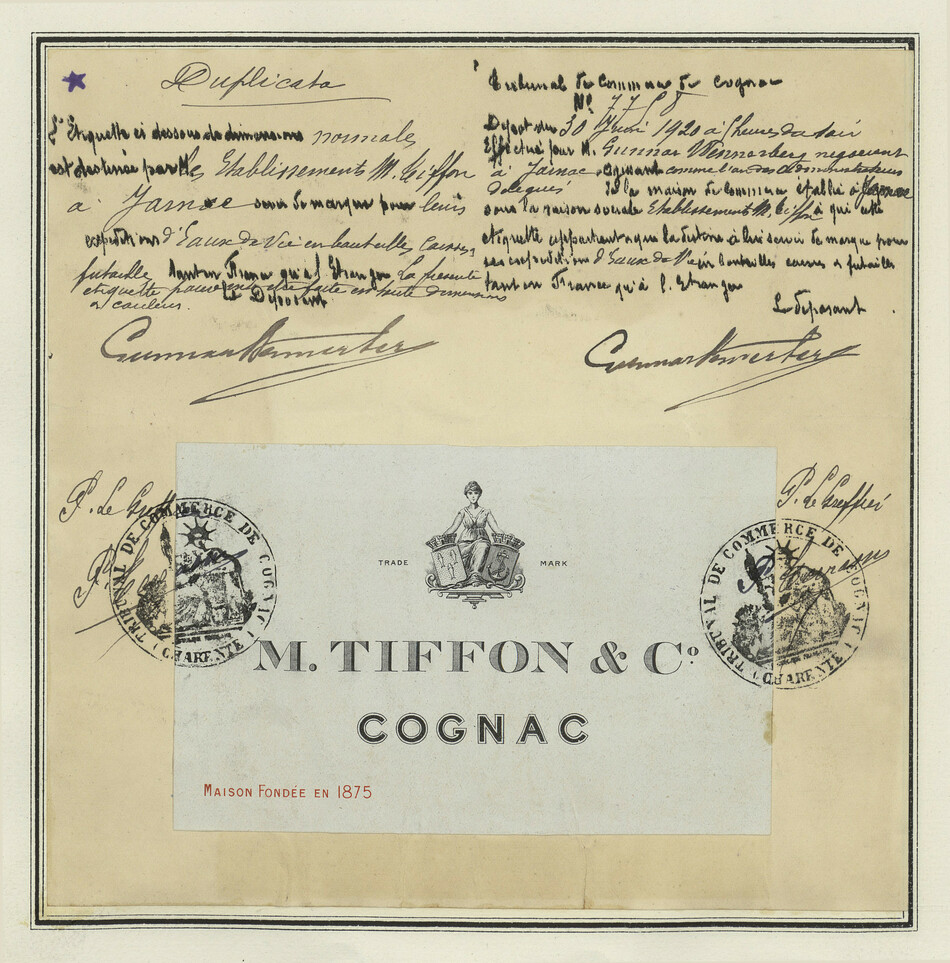 Duplicata
L'Etiquette ci dessous de dimensions normale
est destinée par les Etablissements M. Tiffon
à Jarnac servir de marque pour leurs
expéditions d'Eaux de Vie en bouteilles, caisses,
futailles tant en France qu'à l'Etranger La présente
etiquette pourra être faite en toute dimensions
et couleurs.
Le Déposant
Tribunal de Commerce de Cognac
No
Dépot du 30 1920 à heures du soir
Effectué par M. Gunnar Wennerberg negociant
à Jarnac, agissant comme l'un des administrateurs
delegués de la maison de commerce établie à Jarnac
sous la raison sociale Etablissements M. Tiffon à qui cette
etiquette appartient et que la destine à lui servir de marque pour
ses expeditions d'Eaux de Vie en bouteilles caisses et futailles
tant en France qu'à l'Etranger
Le déposant
Gunnar Wennerberg
Gunnar Wennerberg
P. le Greffier
P. le Greffier
TRIBUNAL DE COMMERCE DE COGNAC
(CHARENTE)
TRIBUNAL DE COMMERCE DE COGNAC
(CHARENTE)
TRADE MARK
M. TIFFON & Co.
COGNAC
MAISON FONDÉE EN 1875